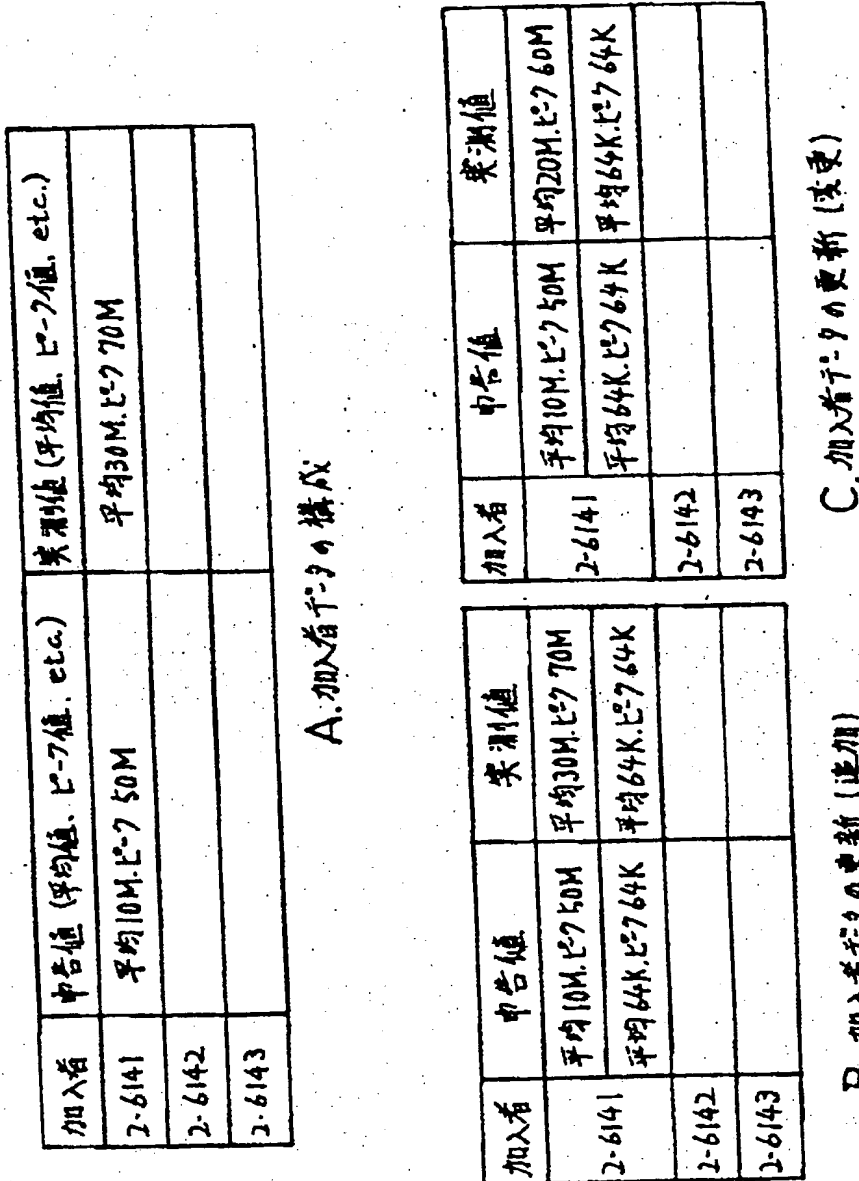 加入者 申告値(平均値、ピーク値、etc.) 実測値(平均値、ピーク値、etc.)
2-6141 平均10M.ピーク50M 平均30M.ピーク70M
2-6142
2-6143
A.加入者データの構成
加入者 申告値 実測値
2-6141 平均10M.ピーク50M 平均30M.ピーク70M
平均64K.ピーク64K 平均64K.ピーク64K
2-6142
2-6143
B.加入者データの更新(追加)
加入者 申告値 実測値
2-6141 平均10M.ピーク50M 平均20M.ピーク60M
平均64K.ピーク64K 平均64K.ピーク64K
2-6142
2-6143
C.加入者データの更新(変更)